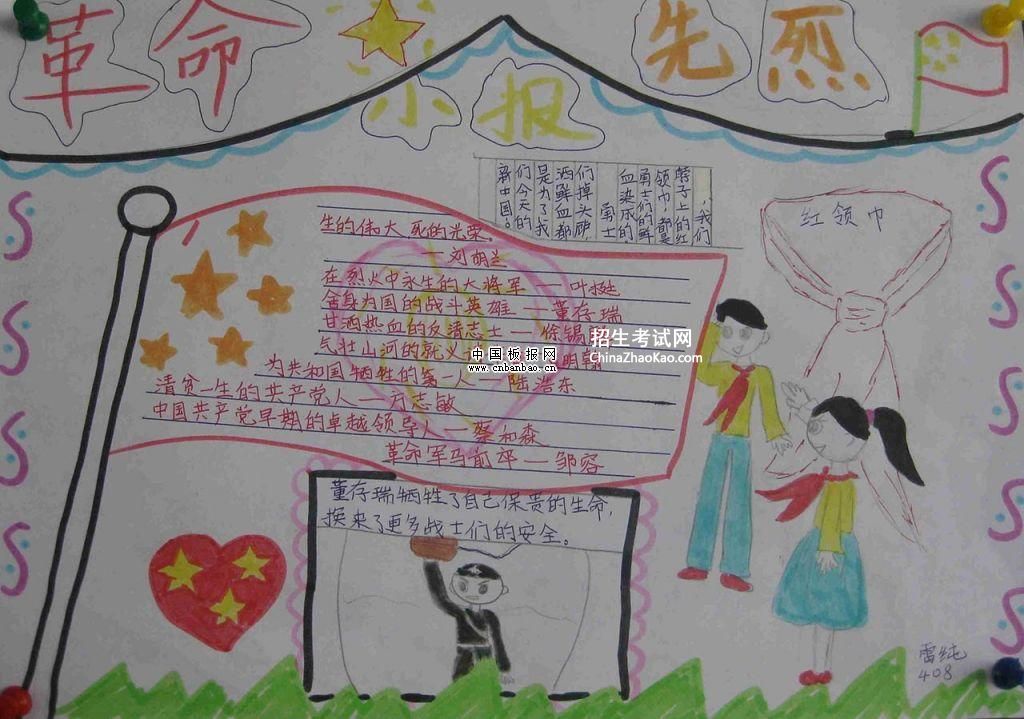 革命 先烈
小报
，我们
脖子上的红
领巾，都是
勇士们的鲜
血染成的
勇士
们掉头颅，
洒鲜血都
是为了我
们今天的
新中国。
红领巾
生的伟大 死的光荣。
—刘胡兰
在烈火中永生的大将军—叶挺
舍身为国的战斗英雄—董存瑞
甘洒热血的反清志士—徐锡
气壮山河的就义 明翰
为共和国牺牲的第一人—陆浩东
清贫一生的共产党人—方志敏
中国共产党早期的卓越领导人—蔡和森
革命军马前卒—邹容
招生考试网
ChinaZhaoKao.com
中国板报网
www.cnbanbao.cn
董存瑞牺牲了自己保贵的生命，
换来了更多战士们的安全。
雷纯
408